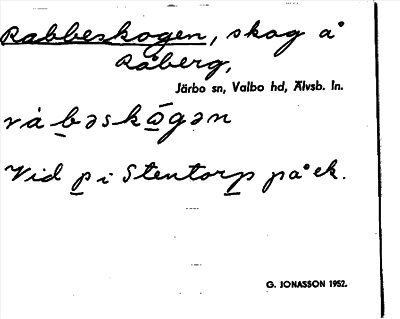 Rabbeskogen, skog å
Råberg,
Järbo sn, Valbo hd, Älvsb. ln.
rábəskógən
Vid p i Stentorp på ek.
G. JONASSON 1952.